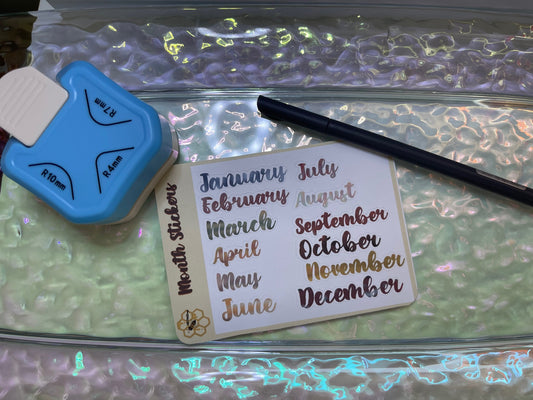 R7mm
R10mm
R4mm
Month Stickers
January
February
March
April
May
June
July
August
September
October
November
December